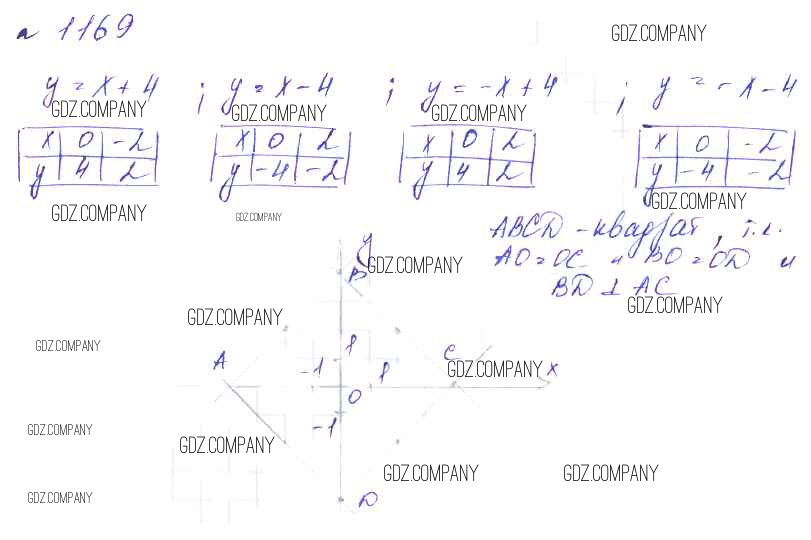 n 1169
GDZ.COMPANY
y = x + 4 ; y = x - 4 ; y = -x + 4 ; y = -x - 4
GDZ.COMPANY GDZ.COMPANY GDZ.COMPANY
x 0 -2 x 0 2 x 0 2 x 0 -2
y 4 2 y -4 -2 y 4 2 y -4 -2
GDZ.COMPANY GDZ.COMPANY GDZ.COMPANY
ABCD - квадрат, т.к.
AO = OC и BO = OD и
BD ⊥ AC
y
B GDZ.COMPANY
GDZ.COMPANY
GDZ.COMPANY
GDZ.COMPANY 1
A -1 1 C GDZ.COMPANY x
O
-1
GDZ.COMPANY GDZ.COMPANY
GDZ.COMPANY GDZ.COMPANY
GDZ.COMPANY D